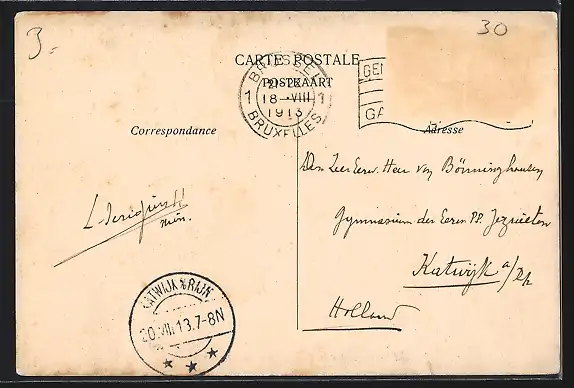 3.-
30
CARTE POSTALE
POSTKAART
BRUSSEL
1 18-VIII 1
1913
BRUXELLES
GEN
GA
Correspondance
Adresse
Den Zeer Eerw. Heer von Bönninghausen
Gymnasium der Eerw. PP. Jezuieten
Katwijk a/Rh
Holland
KATWIJK a/d RIJN
20.VIII.13.7-8N